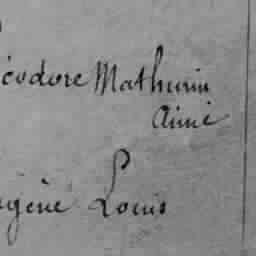 éodore Mathurin
Aimé
ugène Louis